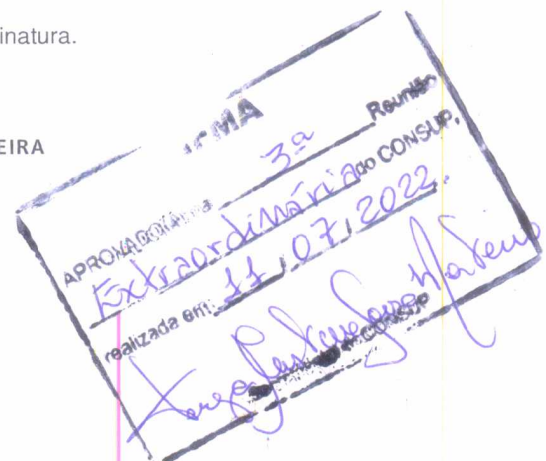 inatura.
EIRA
IFMA
APROVADO 3ª Reunião
Extraordinária do CONSUP,
realizada em: 11 / 07 / 2022.
CONSUP